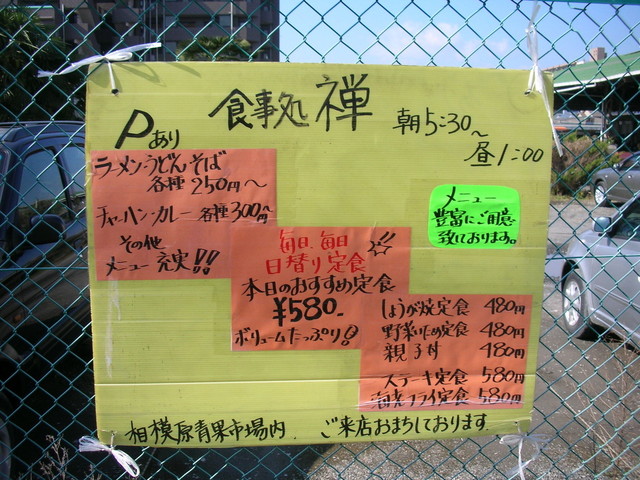 食事処 禅
Pあり
朝5:30~
昼1:00
ラーメン・うどん・そば
各種 250円~
チャーハン・カレー 各種 300円~
その他
メニュー 充実!!
毎日、毎日
日替り定食
本日のおすすめ定食
¥580-
ボリュームたっぷり!
メニュー
豊富にご用意
致しております。
しょうが焼定食 480円
野菜いため定食 480円
親子丼 480円
ステーキ定食 580円
フライ定食 580円
相模原青果市場内 ご来店おまちしております